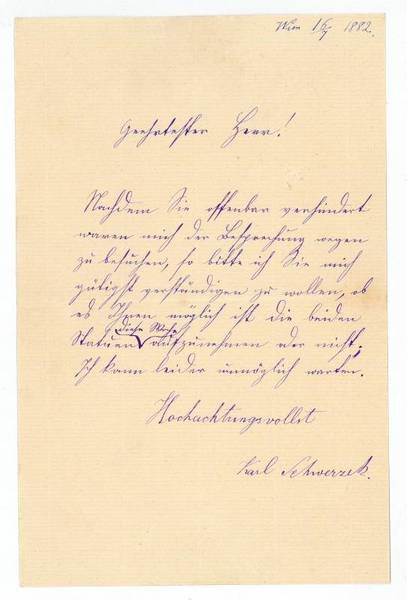 Wien 16/7 1882.
Geehrtester Herr!
Nachdem Sie offenbar verhindert
waren mich der Besprechung wegen
zu besuchen, so bitte ich Sie mich
gütigst verständigen zu wollen, ob
es Ihnen möglich ist die beiden
diese Woche
Statuen aufzunehmen oder nicht;
Ich kann leider unmöglich warten.
Hochachtungsvollst
Karl Schwerzek.